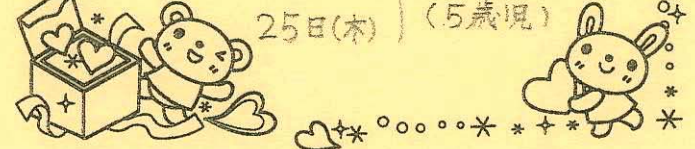 25日(木) } (5歳児)